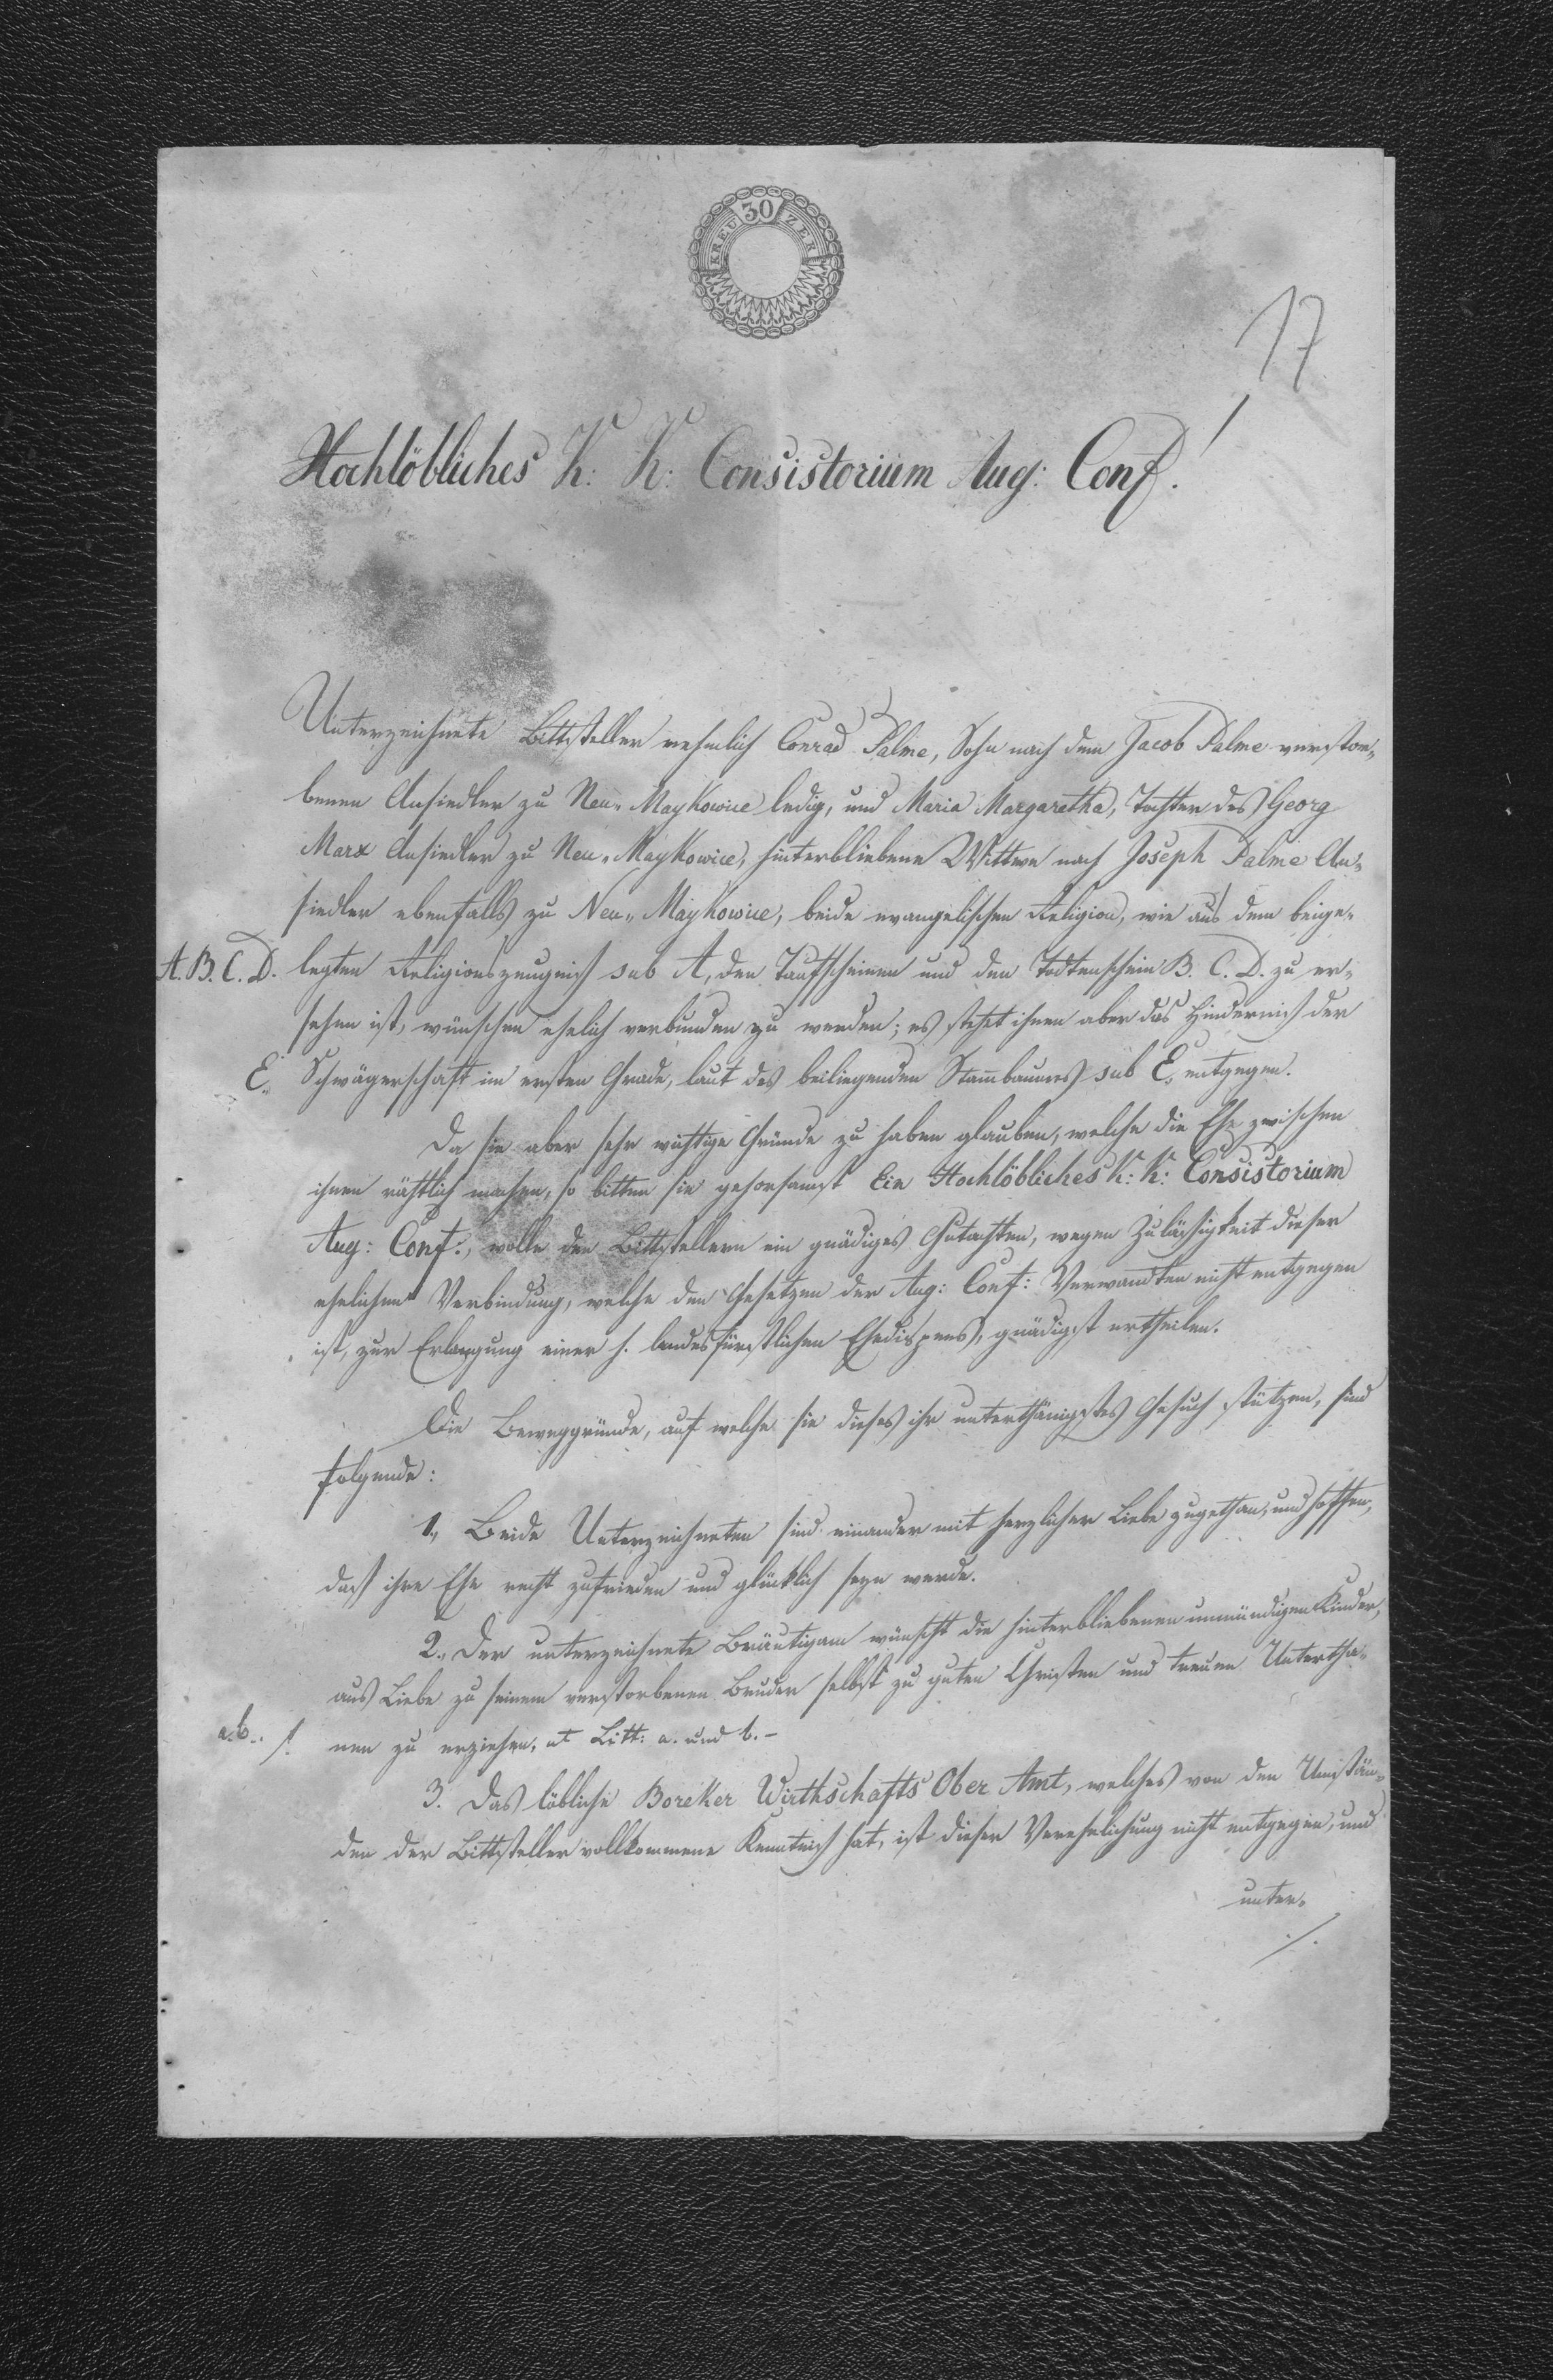 30
KREUZER
17
Hochlöbliches K: K: Consistorium Aug: Conf.!
Unterzeichnete Bittsteller nehmlich Conrad Palme, Sohn nach dem Jacob Palme verstor„
benen Ansiedler zu Neu„ Maykowice ledig, und Maria Margaretha, Tochter des Georg
Marx Ansiedler zu Neu„ Maykowice, hinterbliebene Wittwe nach Joseph Palme An„
siedler ebenfalls zu Neu„ Maykowice, beide evangelischen Religion, wie aus dem beige„
A. B. C. D. legten Religionszeugniß sub A, den Taufscheinen und den Todtenschein B. C. D. zu er„
sehen ist, wünschen ehelich verbunden zu werden; es stehet ihnen aber das Hinderniß der
E. Schwägerschaft im ersten Grade, laut des beiliegenden Stammbaumes sub E. entgegen.
Da sie aber sehr wichtige Gründe zu haben glauben, welche die Ehe zwischen
ihnen räthlich machen, so bitten sie gehorsamst Ein Hochlöbliches K: K: Consistorium
Aug: Conf:, wolle den Bittstellern ein gnädiges Gutachten, wegen Zuläßigkeit dieser
ehelichen Verbindung, welche den Gesetzen der Aug: Conf: Verwandten nicht entgegen
ist, zur Erlangung einer h. landesfürstlichen Ehedispens, gnädigst ertheilen.
Die Beweggründe, auf welche sie dieses ihr unterthänigstes Gesuch stützen, sind
folgende:
1., Beide Unterzeichneten sind einander mit herzlicher Liebe zugethan, und hoffen,
daß ihre Ehe recht zufrieden und glücklich seyn werde.
2., Der unterzeichnete Bräutigam wünscht die hinterbliebenen unmündigen Kinder,
aus Liebe zu seinem verstorbenen Bruder selbst zu guten Christen und treuen Untertha„
a. b. ./. nen zu erziehen, ut Litt: a. und b. –
3. Das löbliche Boreker Wirthschafts Ober Amt, welches von den Umstän„
den der Bittsteller vollkommene Kenntniß hat, ist dieser Verehelichung nicht entgegen, und
unter„
./.